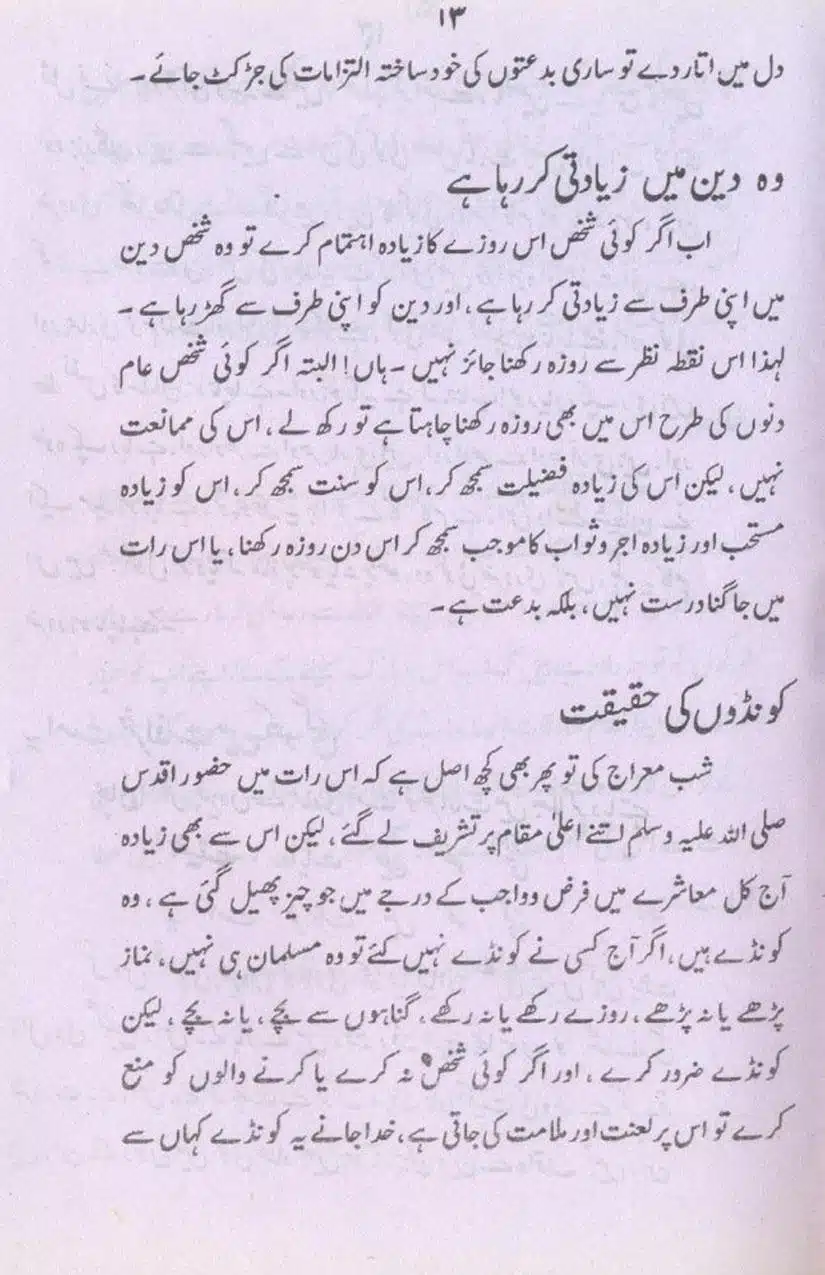 ۱۳
دل میں اتار دے تو ساری بدعتوں کی خود ساختہ التزامات کی جڑ کٹ جائے ۔
وہ دین میں زیادتی کر رہا ہے
اب اگر کوئی شخص اس روزے کا زیادہ اہتمام کرے تو وہ شخص دین
میں اپنی طرف سے زیادتی کر رہا ہے ، اور دین کو اپنی طرف سے گھڑ رہا ہے ۔
لہذا اس نقطہ نظر سے روزہ رکھنا جائز نہیں ۔ ہاں ! البتہ اگر کوئی شخص عام
دنوں کی طرح اس میں بھی روزہ رکھنا چاہتا ہے تو رکھ لے ، اس کی ممانعت
نہیں ، لیکن اس کی زیادہ فضیلت سمجھ کر ، اس کو سنت سمجھ کر ، اس کو زیادہ
مستحب اور زیادہ اجر و ثواب کا موجب سمجھ کر اس دن روزہ رکھنا ، یا اس رات
میں جاگنا درست نہیں ، بلکہ بدعت ہے ۔
کونڈوں کی حقیقت
شب معراج کی تو پھر بھی کچھ اصل ہے کہ اس رات میں حضور اقدس
صلی اللہ علیہ وسلم اتنے اعلیٰ مقام پر تشریف لے گئے ، لیکن اس سے بھی زیادہ
آج کل معاشرے میں فرض و واجب کے درجے میں جو چیز پھیل گئی ہے ، وہ
کونڈے ہیں ، اگر آج کسی نے کونڈے نہیں کئے تو وہ مسلمان ہی نہیں ، نماز
پڑھے یا نہ پڑھے ، روزے رکھے یا نہ رکھے ، گناہوں سے بچے ، یا نہ بچے ، لیکن
کونڈے ضرور کرے ، اور اگر کوئی شخص نہ کرے یا کرنے والوں کو منع
کرے تو اس پر لعنت اور ملامت کی جاتی ہے ، خدا جانے یہ کونڈے کہاں سے